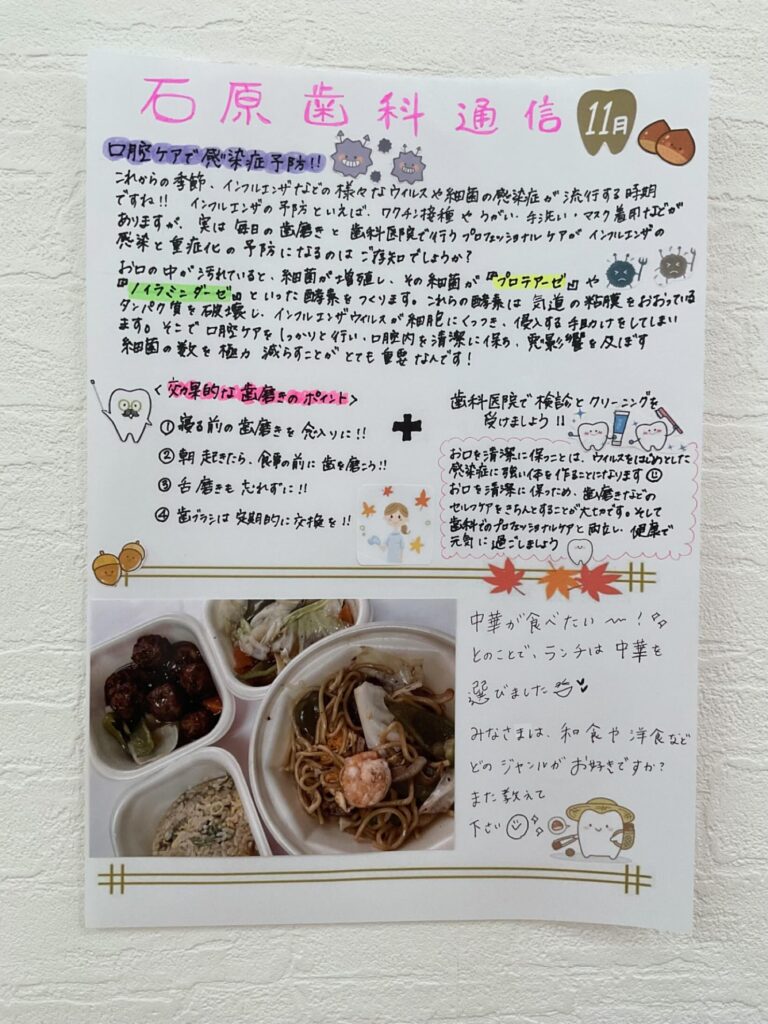 石原歯科通信 11月
口腔ケアで感染症予防!!
これからの季節、インフルエンザなどの様々なウイルスや細菌の感染症が流行する時期
ですね!! インフルエンザの予防といえば、ワクチン接種やうがい・手洗い・マスク着用などが
ありますが、実は毎日の歯磨きと歯科医院で行うプロフェッショナルケアがインフルエンザの
感染と重症化の予防になるのはご存知でしょうか?
お口の中が汚れていると、細菌が増殖し、その細菌が『プロテアーゼ』や
『ノイラミニダーゼ』といった酵素をつくります。これらの酵素は気道の粘膜をおおっている
タンパク質を破壊し、インフルエンザウイルスが細胞にくっつき、侵入する手助けをしてしまい
ます。そこで口腔ケアをしっかりと行い、口腔内を清潔に保ち、悪影響を及ぼす
細菌の数を極力減らすことがとても重要なんです!
<効果的な歯磨きのポイント>
①寝る前の歯磨きを念入りに!!
②朝起きたら、食事の前に歯を磨こう!!
③舌磨きも忘れずに!!
④歯ブラシは定期的に交換を!!
+
歯科医院で検診とクリーニングを
受けましょう!!
お口を清潔に保つことは、ウイルスをはじめとした
感染症に強い体を作ることになります
お口を清潔に保つため、歯磨きなどの
セルフケアをきちんとすることが大切です。そして
歯科でのプロフェッショナルケアと両立し、健康で
元気に過ごしましょう
中華が食べたい〜!
とのことで、ランチは中華を
選びました
みなさまは、和食や洋食など
どのジャンルがお好きですか?
また教えて
下さい